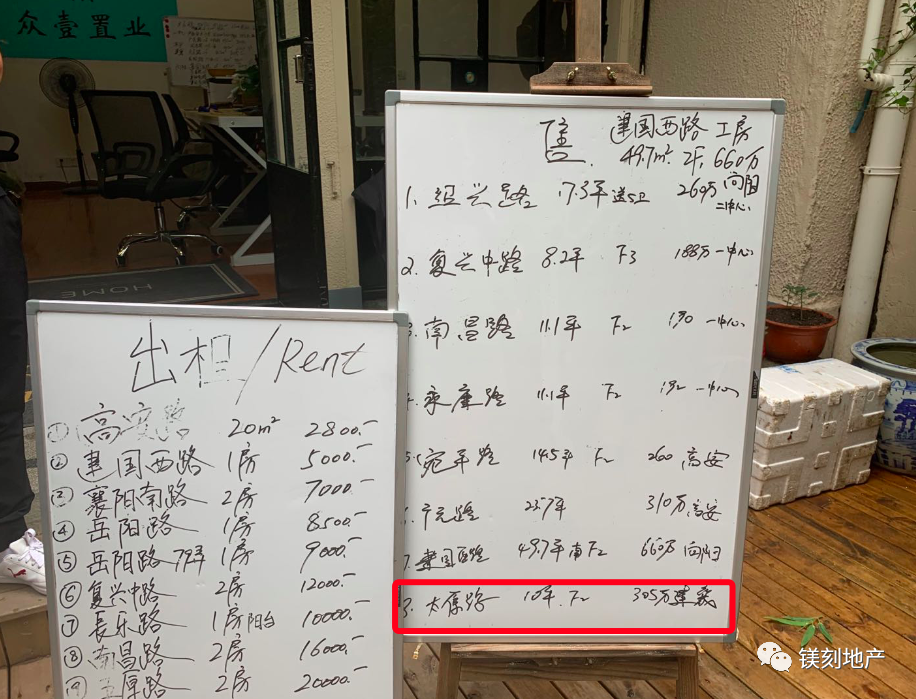 众壹置业
HOME
售 建国西路 工房
49.7m² 2F, 660万
1. 绍兴路 17.3平 送5卫 269万 向阳
二中心
2. 复兴中路 8.2平 F3 188万 一中心
3. 南昌路 11.1平 F2 190 一中心
4. 永康路 11.1平 F2 192 一中心
5. 宛平路 14.5平 F2 260 高安
6. 广元路 23.7平 310万 高安
7. 建国西路 49.7平 南F2 660万 向阳
8. 太原路 10平 F2 305万 建襄
出租/Rent
① 高安路 20m² 2800.-
② 建国西路 1房 5000.-
③ 襄阳南路 2房 7000.-
④ 岳阳路 1房 8500.-
⑤ 岳阳路 79平 1房 9000.-
⑥ 复兴中路 2房 12000.-
⑦ 长乐路 1房阳台 10000.-
⑧ 南昌路 2房 16000.-
⑨ 五原路 2房 20000.-
镁刻地产